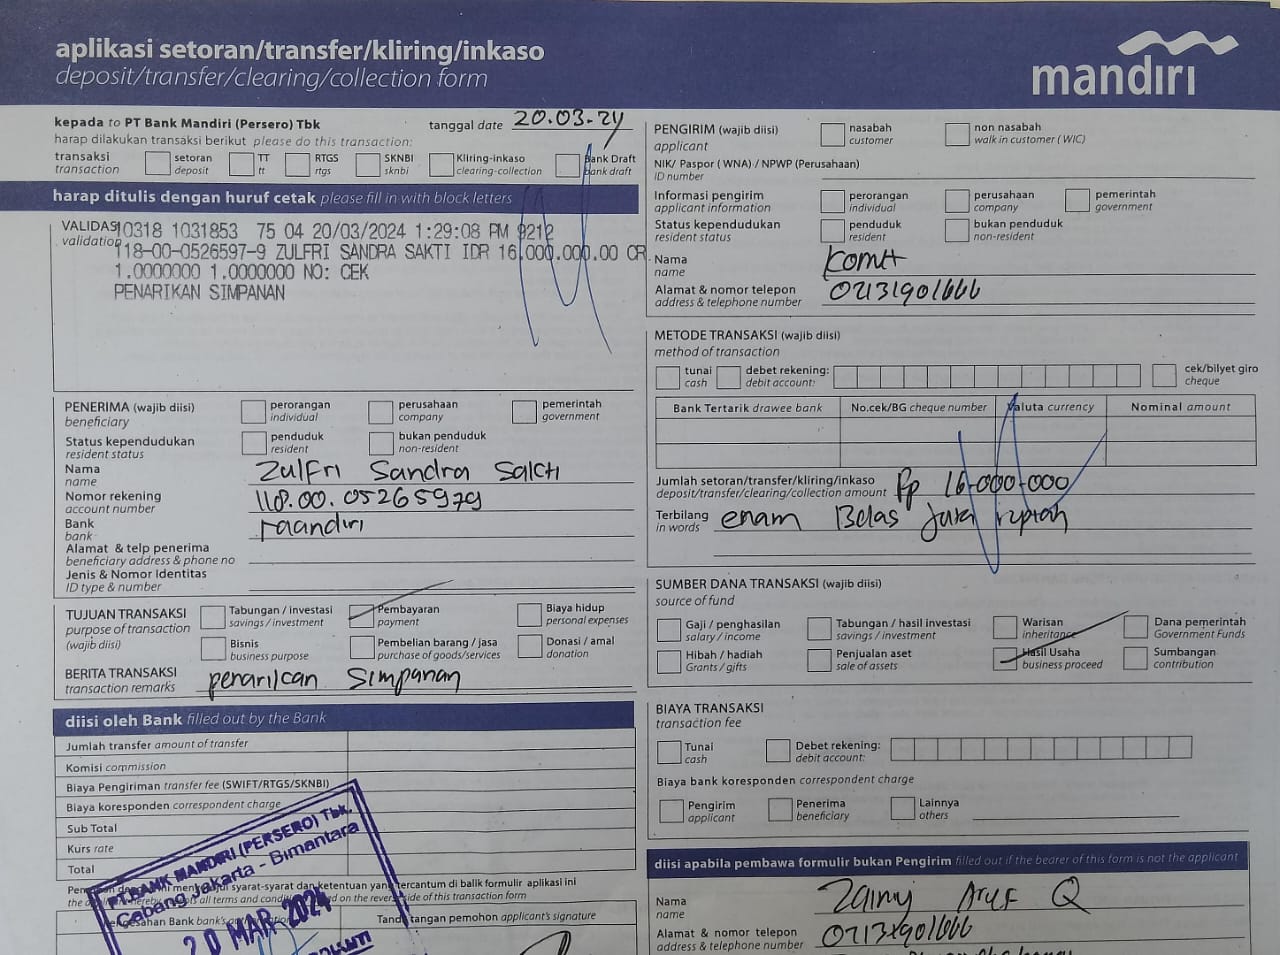 aplikasi setoran/transfer/kliring/inkaso
deposit/transfer/clearing/collection form
mandırı
kepada to PT Bank Mandiri (Persero) Tbk
tanggal date 20.03-24
harap dilakukan transaksi berikut please do this transaction:
transaksi
transaction
setoran
deposit
TT
tt
RTGS
rtgs
SKNBI
sknbi
Kliring-inkaso
clearing-collection
Bank Draft
bank draft
harap ditulis dengan huruf cetak please fill in with block letters
VALIDASI
validation
10318 1031853 75 04 20/03/2024 1:29:08 PM 9212
118-00-0526597-9 ZULFRI SANDRA SAKTI IDR 16.000.000.00 CR
1.0000000 1.0000000 NO: CEK
PENARIKAN SIMPANAN
PENERIMA (wajib diisi)
beneficiary
perorangan
individual
perusahaan
company
pemerintah
government
Status kependudukan
resident status
penduduk
resident
bukan penduduk
non-resident
Nama
name
Zulfri Sandra Sakti
Nomor rekening
account number
118.00.05265979
Bank
bank
mandiri
Alamat & telp penerima
beneficiary address & phone no
Jenis & Nomor Identitas
ID type & number
TUJUAN TRANSAKSI
purpose of transaction
(wajib diisi)
Tabungan / investasi
savings / investment
Pembayaran
payment
Biaya hidup
personal expenses
Bisnis
business purpose
Pembelian barang / jasa
purchase of goods/services
Donasi / amal
donation
BERITA TRANSAKSI
transaction remarks
penarikan Simpanan
diisi oleh Bank filled out by the Bank
Jumlah transfer amount of transfer
Komisi commission
Biaya Pengiriman transfer fee (SWIFT/RTGS/SKNBI)
Biaya koresponden correspondent charge
Sub Total
Kurs rate
Total
menyetujui syarat-syarat dan ketentuan yang tercantum di balik formulir aplikasi ini
all terms and conditions on the reverse side of this transaction form
Pengesahan Bank bank's
Tanda tangan pemohon applicant's signature
PT BANK MANDIRI (PERSERO) Tbk.
Cabang Jakarta - Bimantara
20 MAR 2024
PENGIRIM (wajib diisi)
applicant
nasabah
customer
non nasabah
walk in customer (WIC)
NIK/ Paspor ( WNA) / NPWP (Perusahaan)
ID number
Informasi pengirim
applicant information
perorangan
individual
perusahaan
company
pemerintah
government
Status kependudukan
resident status
penduduk
resident
bukan penduduk
non-resident
Nama
name
Alamat & nomor telepon
address & telephone number
02131901666
METODE TRANSAKSI (wajib diisi)
method of transaction
tunai
cash
debet rekening:
debit account:
cek/bilyet giro
cheque
Bank Tertarik drawee bank
No.cek/BG cheque number
Valuta currency
Nominal amount
Jumlah setoran/transfer/kliring/inkaso
deposit/transfer/clearing/collection amount
Rp 16-000-000
Terbilang
in words
enam Belas juta rupiah
SUMBER DANA TRANSAKSI (wajib diisi)
source of fund
Gaji / penghasilan
salary / income
Tabungan / hasil investasi
savings / investment
Warisan
inheritance
Dana pemerintah
Government Funds
Hibah / hadiah
Grants / gifts
Penjualan aset
sale of assets
Hasil Usaha
business proceed
Sumbangan
contribution
BIAYA TRANSAKSI
transaction fee
Tunai
cash
Debet rekening:
debit account:
Biaya bank koresponden correspondent charge
Pengirim
applicant
Penerima
beneficiary
Lainnya
others
diisi apabila pembawa formulir bukan Pengirim filled out if the bearer of this form is not the applicant
Nama
name
Q
Alamat & nomor telepon
address & telephone number